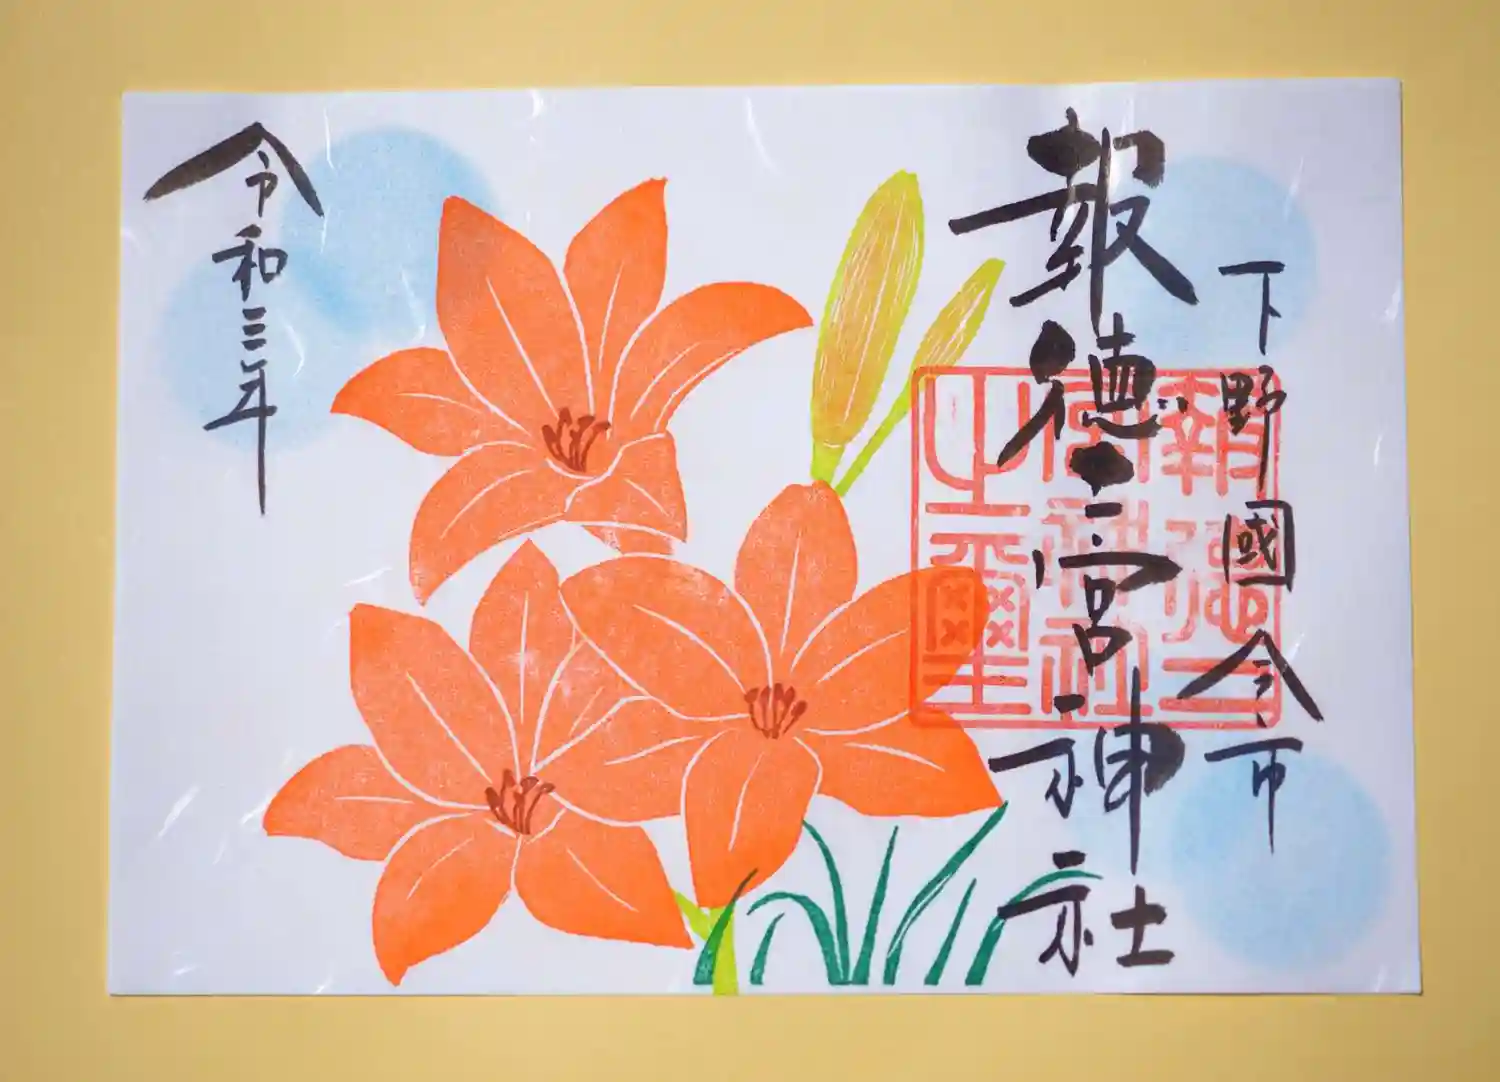 下野國今市
報徳二宮神社
報徳二宮神社之璽
令和三年